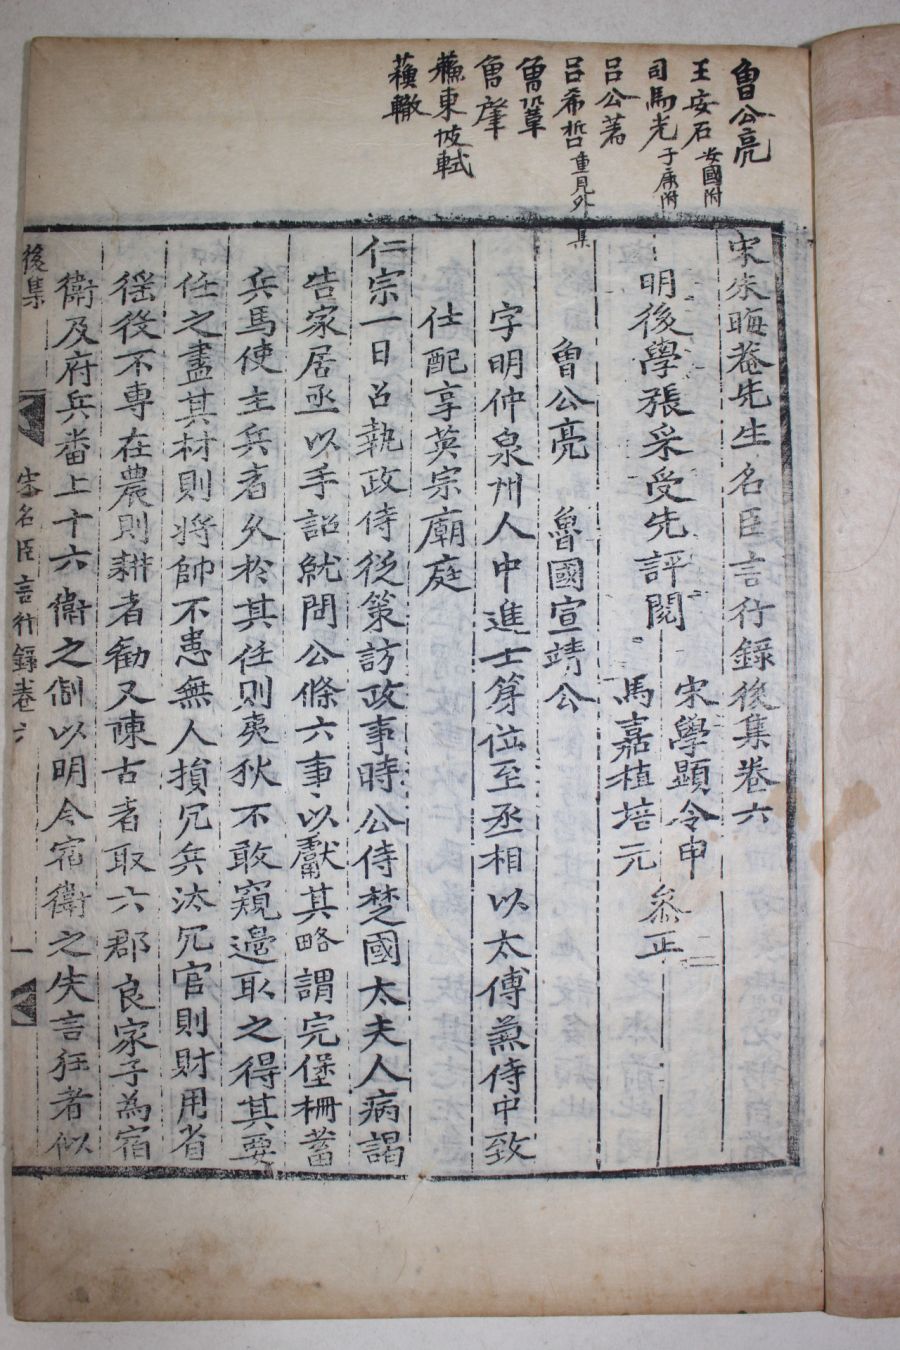 曾公亮
王安石 安國附
司馬光 子康附
呂公著
呂希哲 重見外集
曾鞏
曾肇
蘇東坡軾
蘇轍
宋朱晦菴先生名臣言行錄後集卷六
明後學張采受先評閱
宋學顯令申
馬嘉植培元
叅正
曾公亮 魯國宣靖公
字明仲泉州人中進士第位至丞相以太傅兼侍中致
仕配享英宗廟庭
仁宗一日召執政侍從策訪政事時公侍楚國太夫人病謁
告家居亟以手詔就問公條六事以獻其略謂完堡柵蓄
兵馬使主兵者久於其任則夷狄不敢窺邊取之得其要
任之盡其材則將帥不患無人損冗兵汰冗官則財用省
徭役不專在農則耕者勸又陳古者取六郡良家子為宿
衛及府兵番上十六衛之制以明今宿衛之失言狂者似
後集
宋名臣言行錄卷六
一